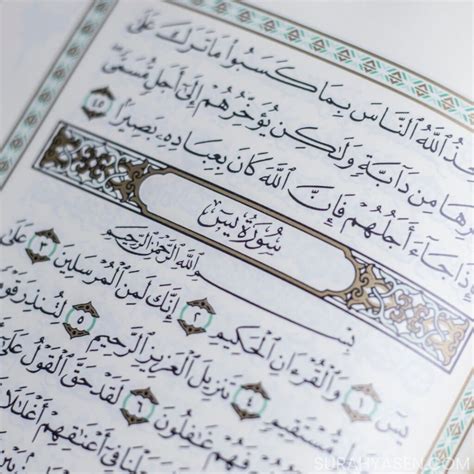 خِذُ ٱللَّهُ ٱلنَّاسَ بِمَا كَسَبُوا۟ مَا تَرَكَ عَلَىٰ
رِهَا مِن دَآبَّةٍ وَلَٰكِن يُؤَخِّرُهُمْ إِلَىٰٓ أَجَلٍ مُّسَمًّى
ذَا جَآءَ أَجَلُهُمْ فَإِنَّ ٱللَّهَ كَانَ بِعِبَادِهِۦ بَصِيرًۢا ٤٥
سُورَةُ يسٓ
بِسْمِ ٱللَّهِ ٱلرَّحْمَٰنِ ٱلرَّحِيمِ
يسٓ ١ وَٱلْقُرْءَانِ ٱلْحَكِيمِ ٢ إِنَّكَ لَمِنَ ٱلْمُرْسَلِينَ ٣ عَلَىٰ
مُّسْتَقِيمٍ ٤ تَنزِيلَ ٱلْعَزِيزِ ٱلرَّحِيمِ ٥ لِتُنذِرَ قَوْ
فَهُمْ غَٰفِلُونَ ٦ لَقَدْ حَقَّ ٱلْقَوْلُ عَلَىٰٓ
لْنَا فِىٓ أَعْنَٰقِهِمْ أَغْلَٰلًا
SURAHYASEN.COM